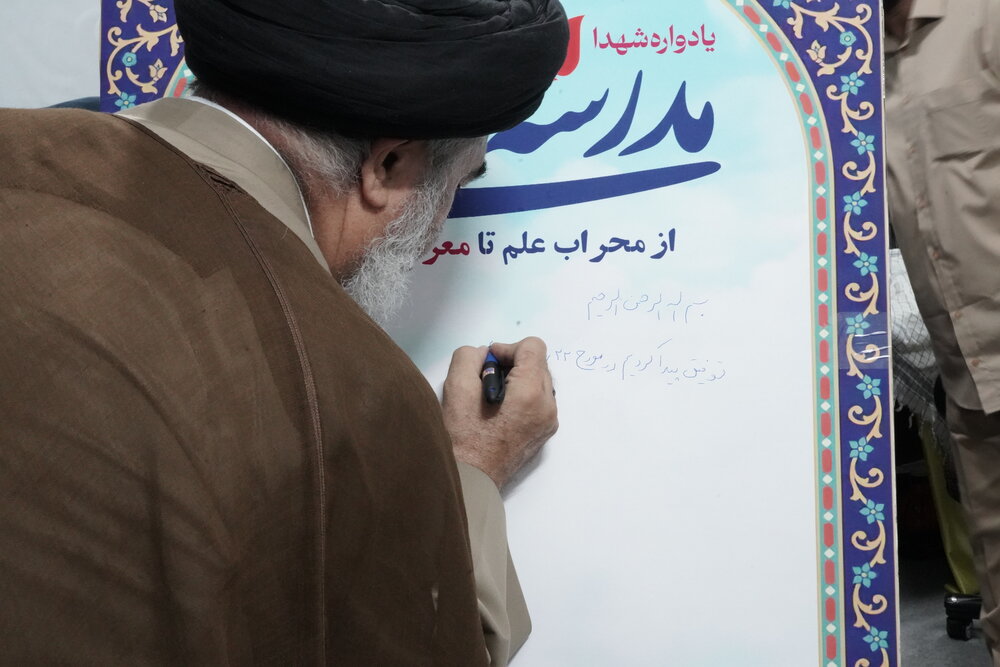 یادواره شهدا
مدرسه
از محراب علم تا معر
بسم الله الرحمن الرحیم
توفیق پیدا کردیم در مورخ ۲۲